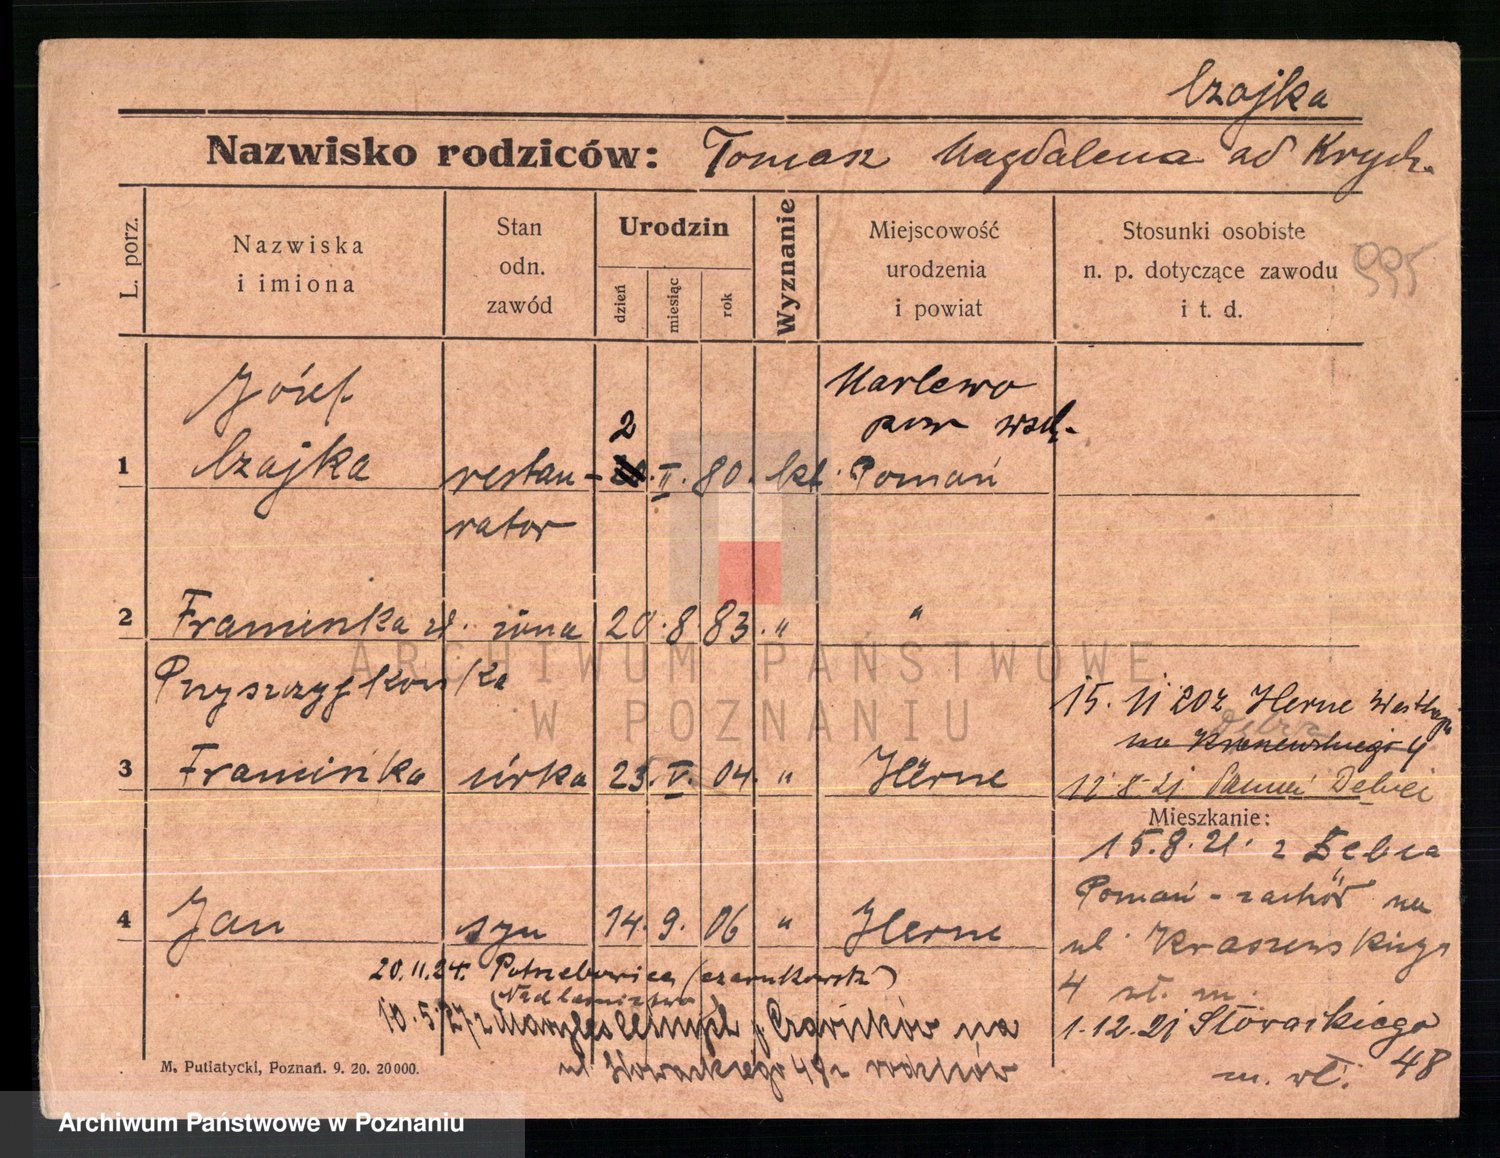 Czajka
Nazwisko rodziców: Tomasz Magdalena od Krych.
L. porz.
Nazwiska
i imiona
Stan
odn.
zawód
Urodzin
dzień
miesiąc
rok
Wyznanie
Miejscowość
urodzenia
i powiat
Stosunki osobiste
n. p. dotyczące zawodu
i t. d.
995
Józef
Marlewo
2
pow wsch.
1 Czajka restau- II. 80. kt. Poznań
rator
2 Franciszka zd. żona 20. 8. 83. " "
Przyszczypkowska
15. 11 20 z Herne Westf
3 Franciszka córka 23. V. 04. " Herne
12.8.21 Dębiec
Mieszkanie:
15.8.21. z Dębca
Poznań - zachód na
4 Jan syn 14. 9. 06 " Herne
ul. Kraszewskiego
4
20.11.24. (czarnkowsk)
(Nadleśnictwo
1.12.21 Słowackiego
48
10.5.27 z Czarnków na
ul Słowackiego 48 z rodziców
m. wł.
M. Putiatycki, Poznań. 9. 20. 20 000.
ARCHIWUM PAŃSTWOWE
W POZNANIU
Archiwum Państwowe w Poznaniu